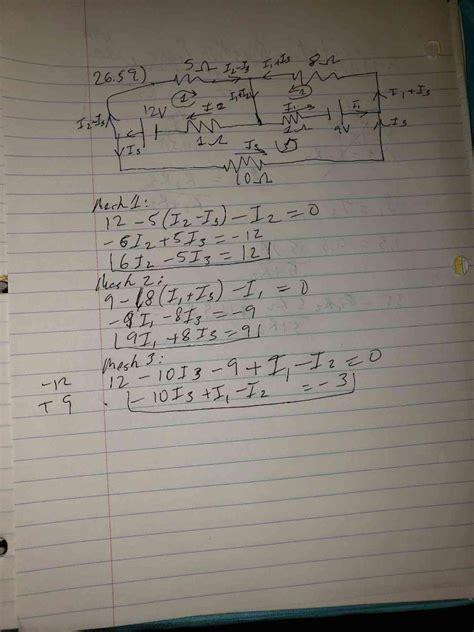 26.59)
5Ω I2-I3 I1+I3 8Ω
1 2
I2-I3 12V I2 I1+I2 I1 I1 I1+I3
1Ω 1Ω 9V
I3 I3 3 I3
10Ω
Mesh 1:
12 - 5(I2-I3) - I2 = 0
-6I2 + 5I3 = -12
6I2 - 5I3 = 12
Mesh 2:
9 - 8(I1+I3) - I1 = 0
-9I1 - 8I3 = -9
9I1 + 8I3 = 9
Mesh 3:
12 - 10I3 - 9 + I1 - I2 = 0
-10I3 + I1 - I2 = -3
-12
+ 9